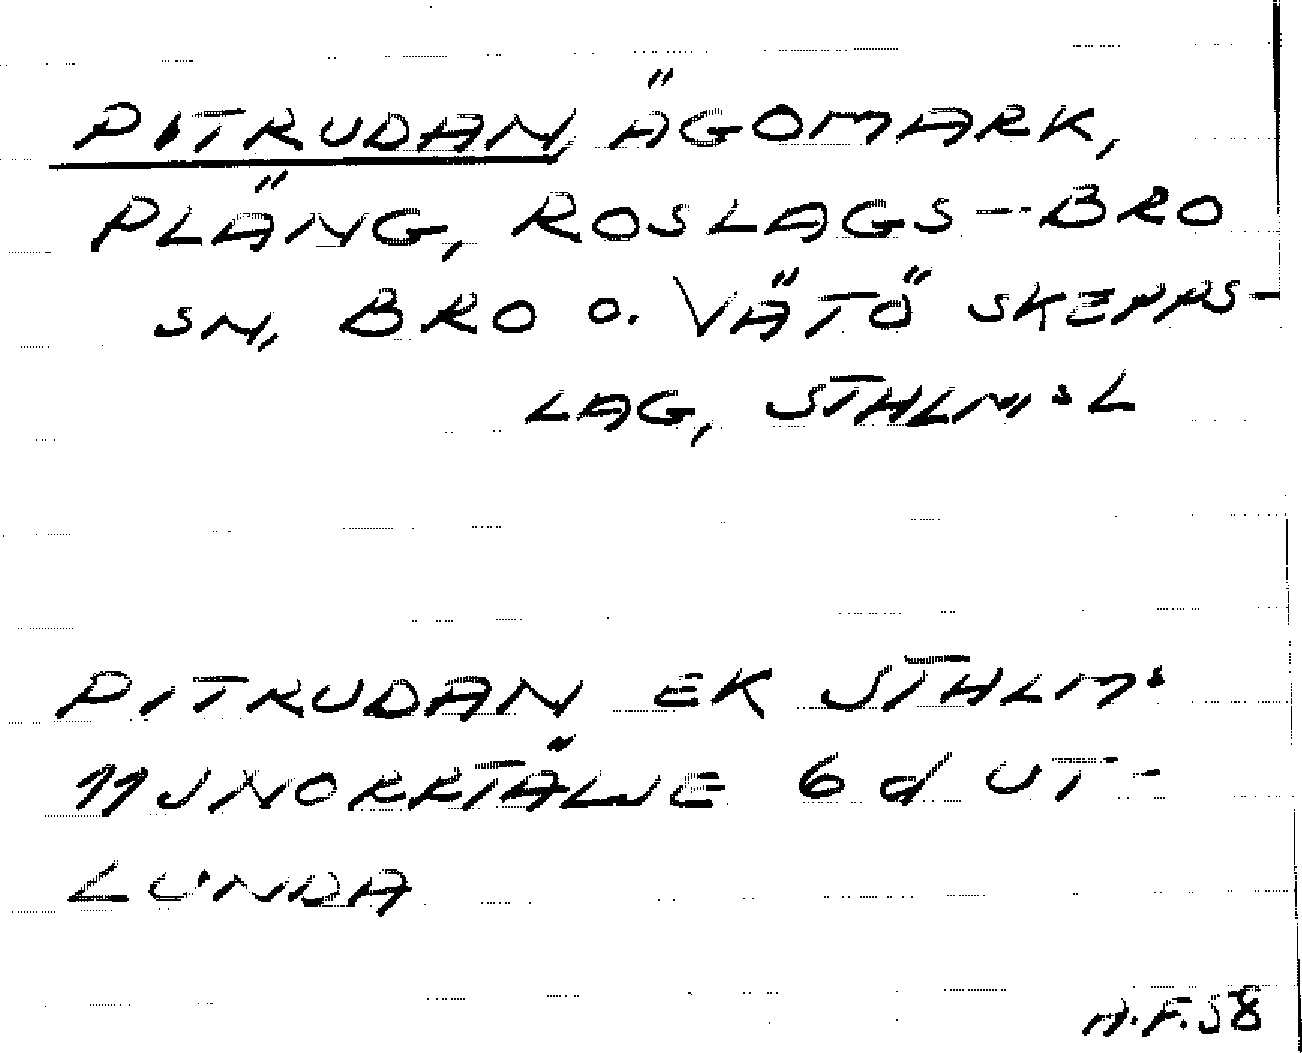 PITRUDAN, ÄGOMARK,
PLÄNG, ROSLAGS-BRO
SN, BRO O. VÄTÖ SKEPPS-
LAG, STHLM:L
PITRUDAN EK STHLM:
11J NORRTÄLJE 6 d UT-
LUNDA
H.F.58